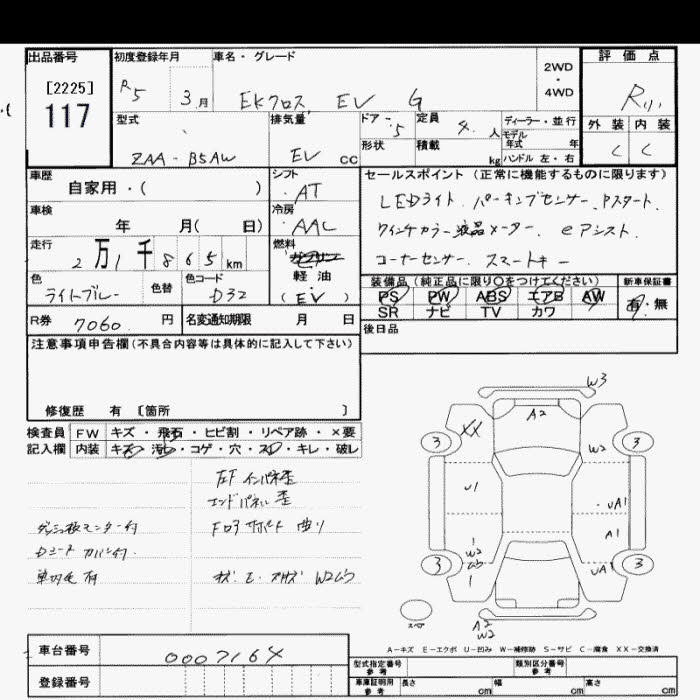 出品番号
[2225]
117
初度登録年月
R5 3月
車名・グレード
EKクロス EV G
2WD
・
4WD
評価点
外装 内装
C C
型式
ZAA-B5AW
排気量
EV cc
ドア・5
形状
定員 4人
積載 kg
ディーラー・並行
モデル
年式 年
ハンドル 左・右
車歴
自家用・( )
シフト
AT
セールスポイント(正常に機能するものに限ります)
LEDライト パーキングセンサー Pスタート
ツインカラー液晶メーター eアシスト
コーナーセンサー スマートキー
車検
年 月( 日)
冷房
AAC
走行
2万1千865km
燃料
ガソリン
軽油
(EV)
色
ライトブルー
色替
色コード
D32
装備品(純正品に限り○をつけてください)
新車保証書
PS PW ABS エアB AW 有・無
SR ナビ TV カワ
R券 7060円
名変通知期限 月 日
後日品
注意事項申告欄(不具合内容等は具体的に記入して下さい)
修復歴 有 [箇所 ]
検査員 FW キズ・飛石・ヒビ割・リペア跡・×要
記入欄 内装 キズ・汚レ・コゲ・穴・スレ・キレ・破レ
左F インパネ歪
エンドパネル 歪
Fロアサポート 曲り
W3
A2
XX
3
3
W2
U1
UA1
A1
W2
3
3
UA1
スペア
A2
W2
A-キズ E-エクボ U-凹み W-補修跡 S-サビ C-腐食 XX-交換済
車台番号 0007164
登録番号
型式指定番号
参考
類別区分番号
参考
車庫証明用
参考
長さ cm
幅 cm
高さ cm